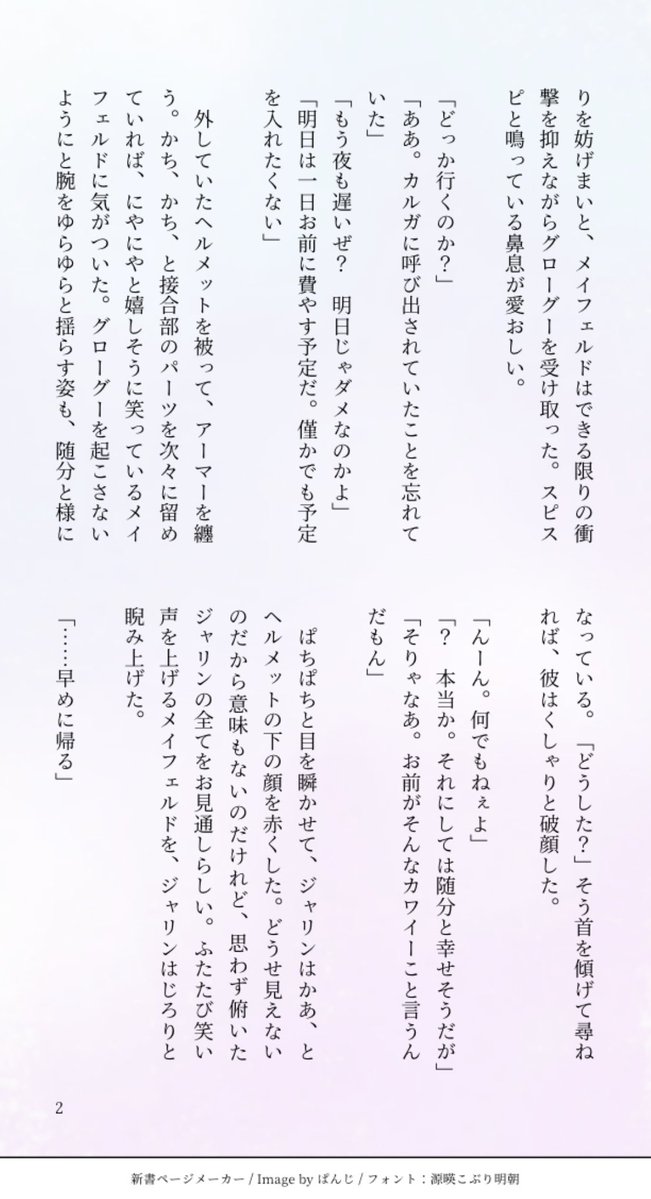 りを妨げまいと、メイフェルドはできる限りの衝
撃を抑えながらグローグーを受け取った。スピス
ピと鳴っている鼻息が愛おしい。
「どっか行くのか？」
「ああ。カルガに呼び出されていたことを忘れて
いた」
「もう夜も遅いぜ？　明日じゃダメなのかよ」
「明日は一日お前に費やす予定だ。僅かでも予定
を入れたくない」
　外していたヘルメットを被って、アーマーを纏
う。かち、かち、と接合部のパーツを次々に留め
ていれば、にやにやと嬉しそうに笑っているメイ
フェルドに気がついた。グローグーを起こさない
ようにと腕をゆらゆらと揺らす姿も、随分と様に
なっている。「どうした？」そう首を傾げて尋ね
れば、彼はくしゃりと破顔した。
「んーん。何でもねぇよ」
「？　本当か。それにしては随分と幸せそうだが」
「そりゃなあ。お前がそんなカワイーこと言うん
だもん」
　ぱちぱちと目を瞬かせて、ジャリンはかあ、と
ヘルメットの下の顔を赤くした。どうせ見えない
のだから意味もないのだけれど、思わず俯いた
ジャリンの全てをお見通しらしい。ふたたび笑い
声を上げるメイフェルドを、ジャリンはじろりと
睨み上げた。
「……早めに帰る」
2
新書ページメーカー / Image by ぱんじ / フォント：源暎こぶり明朝